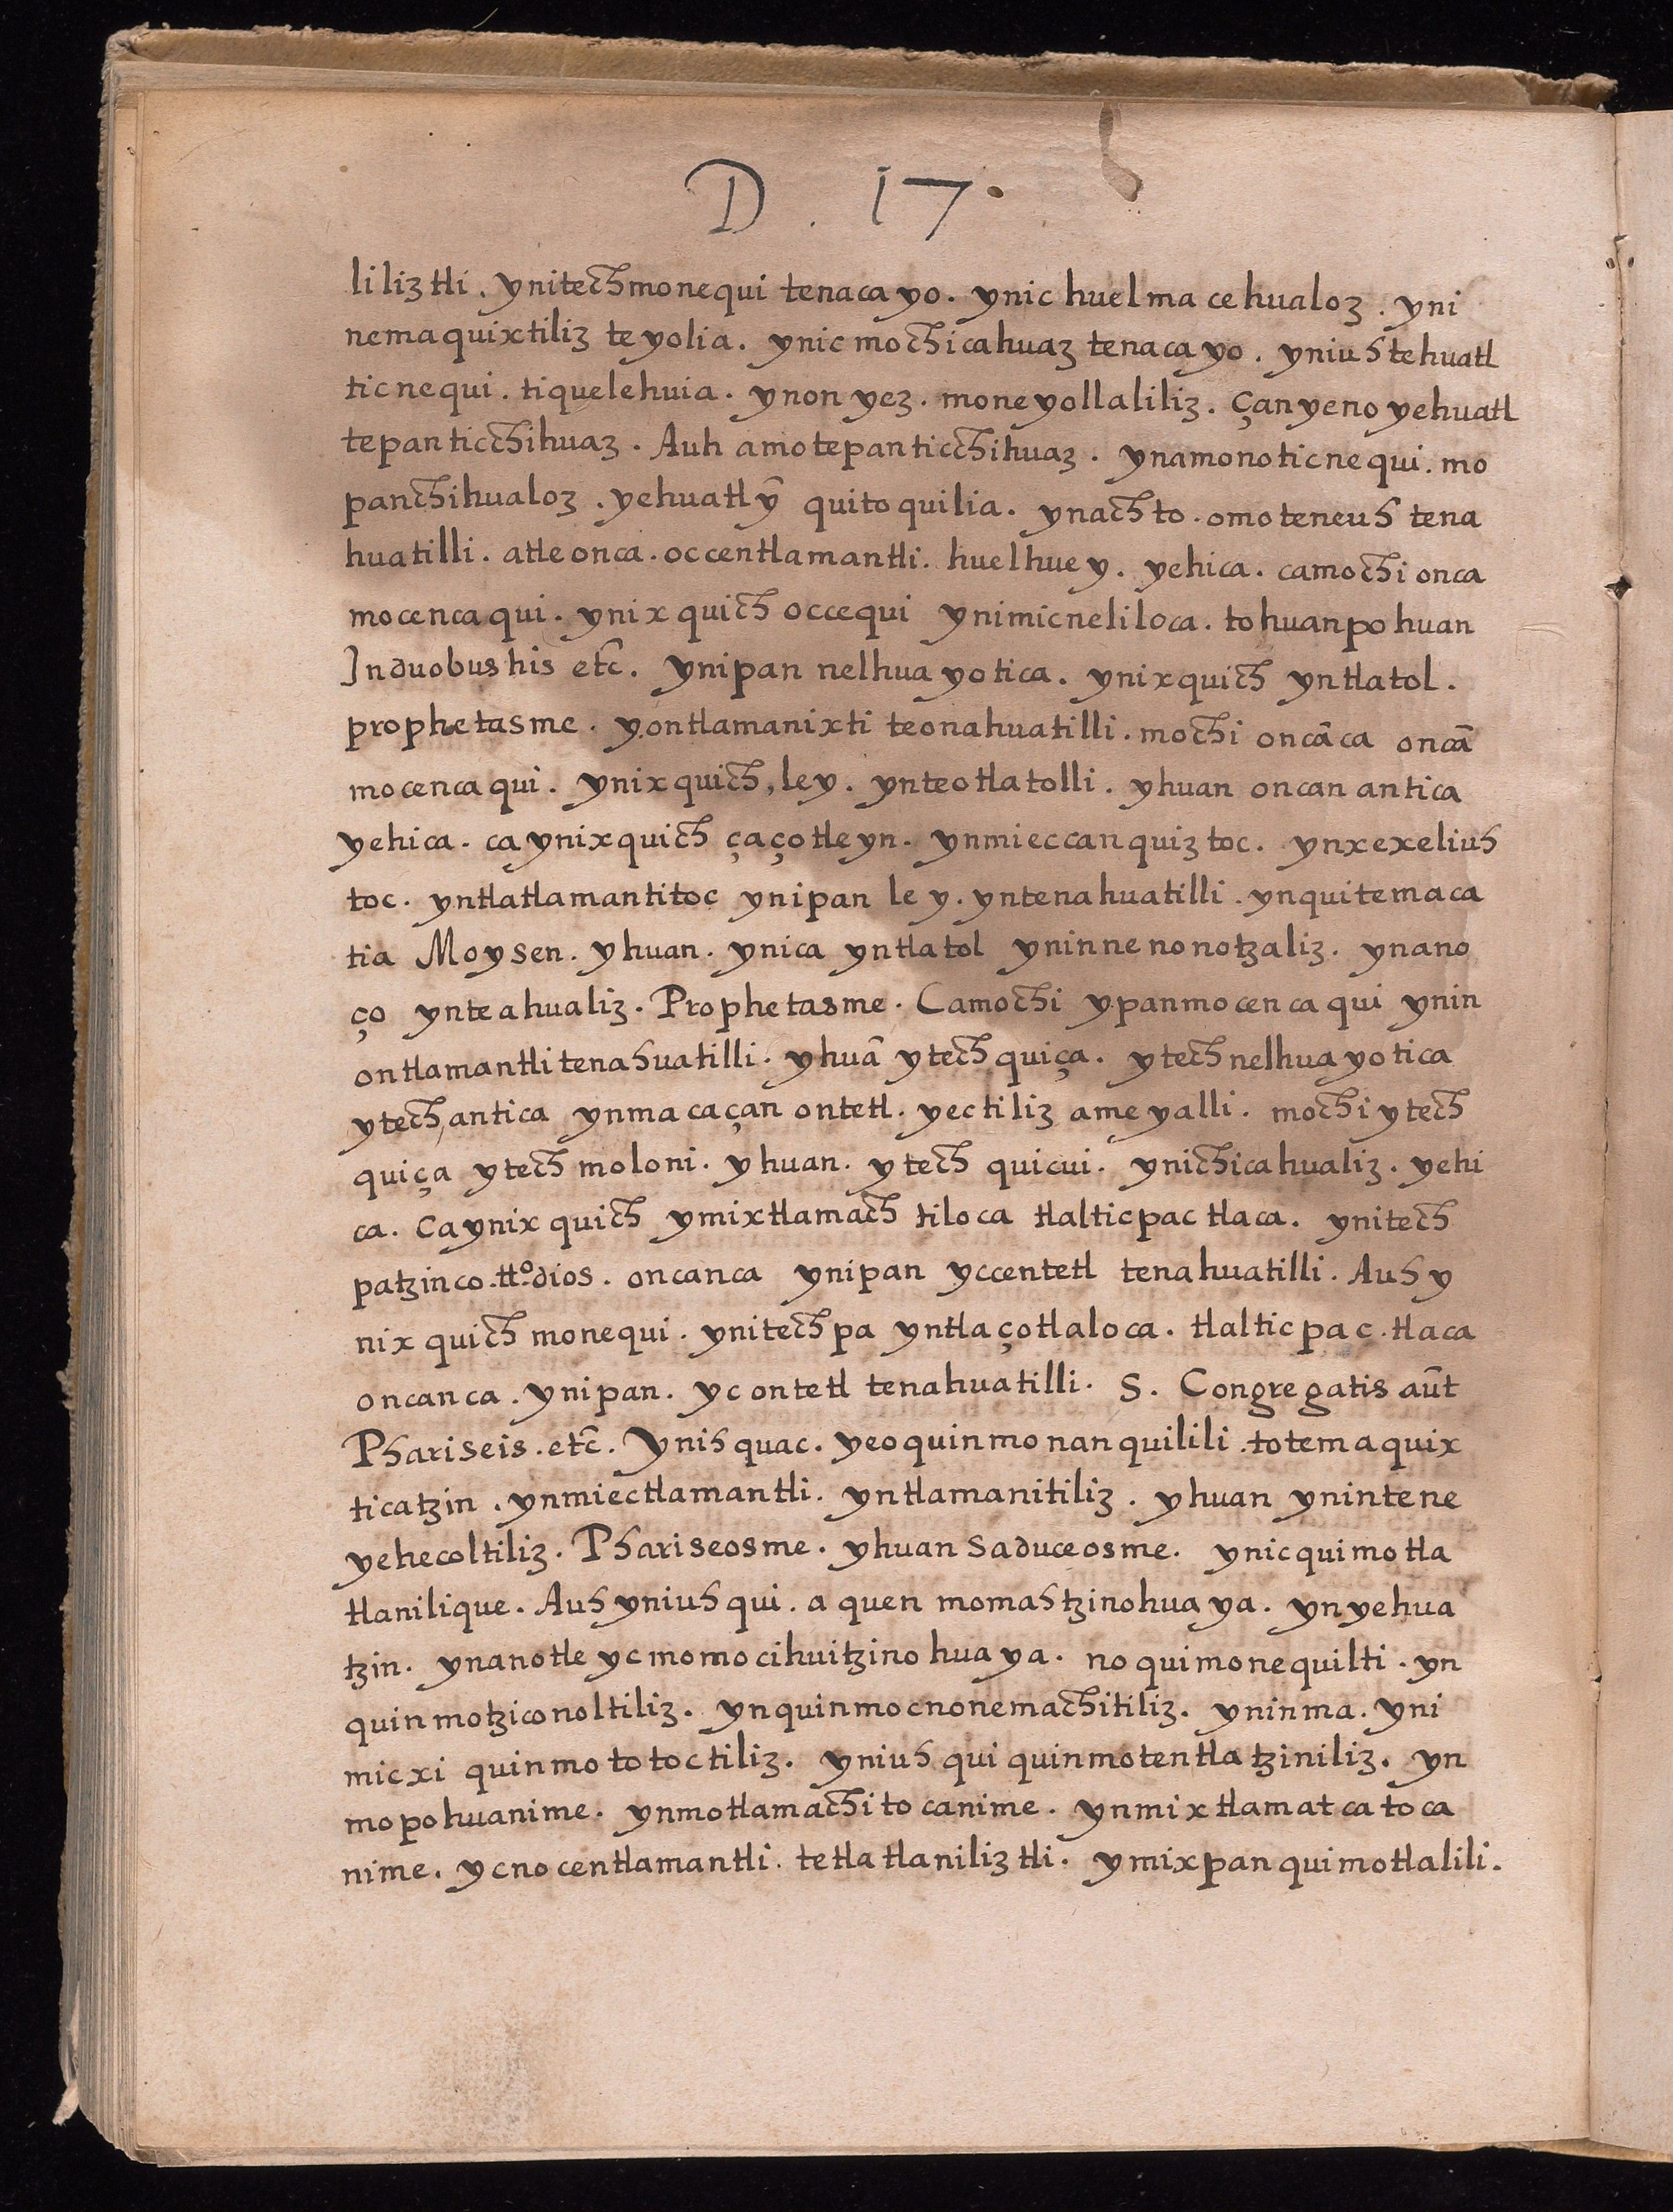 D. 17.
liliztli. ynitechmonequi tenacayo. ynic huelmacehualoz. yni
nemaquixtiliz teyolia. ynic mochicahuaz tenacayo. yniuhtehuatl
ticnequi. tiquelehuia. ynon yez. moneyollaliliz. Çanyenoyehuatl
tepanticchihuaz. Auh amotepanticchihuaz. ynamonoticnequi. mo
panchihualoz. yehuatlȳ quitoquilia. ynachto. omoteneuh tena
huatilli. atleonca. occentlamantli. huelhuey. yehica. camochi onca
mocencaqui. ynixquich occequi ynimicneliloca. tohuanpohuan
Induobushis etc̃. ynipan nelhuayotica. ynixquich yntlatol.
prophetasme. yontlamanixti teonahuatilli. mochi oncāca oncā
mocencaqui. ynixquich, ley. ynteotlatolli. yhuan oncan antica
yehica. caynixquich çaçotleyn. ynmieccanquiztoc. ynxexeliuh
toc. yntlatlamantitoc ynipan ley. yntenahuatilli. ynquitemaca
tia Moysen. yhuan. ynica yntlatol yninnenonotzaliz. ynano
ço ynteahualiz. Prophetasme. Camochi ypanmocencaqui ynin
ontlamantlitenahuatilli. yhuā ytechquiça. ytechnelhuayotica
ytech,antica ynmacaçan ontetl. yectiliz ameyalli. mochiytech
quiça ytech moloni. yhuan. ytech quicui. ynichicahualiz. yehi
ca. Caynixquich ymixtlamachtiloca tlalticpactlaca. ynitech
patzinco.tto.dios. oncanca ynipan yccentetl tenahuatilli. Auh y
nixquich monequi. ynitechpa yntlaçotlaloca. tlalticpac.tlaca
oncanca. ynipan. ycontetl tenahuatilli. S. Congregatis aūt
Phariseis. etc̃. Ynihquac. yeoquinmonanquilili. totemaquix
ticatzin. ynmiectlamantli. yntlamanitiliz. yhuan ynintene
yehecoltiliz. Phariseosme. yhuan Saduceosme. ynicquimotla
tlanilique. Auhyniuhqui. aquen momahtzinohuaya. ynyehua
tzin. ynanotle ycmomocihuitzinohuaya. noquimonequilti. yn
quinmotziconoltiliz. ynquinmocnonemachitiliz. yninma. yni
micxi quinmototoctiliz. yniuhqui quinmotentlatziniliz. yn
mopohuanime. ynmotlamachitocanime. ynmixtlamatcatoca
nime. ycnocentlamantli. tetlatlaniliztli. ymixpanquimotlalili.